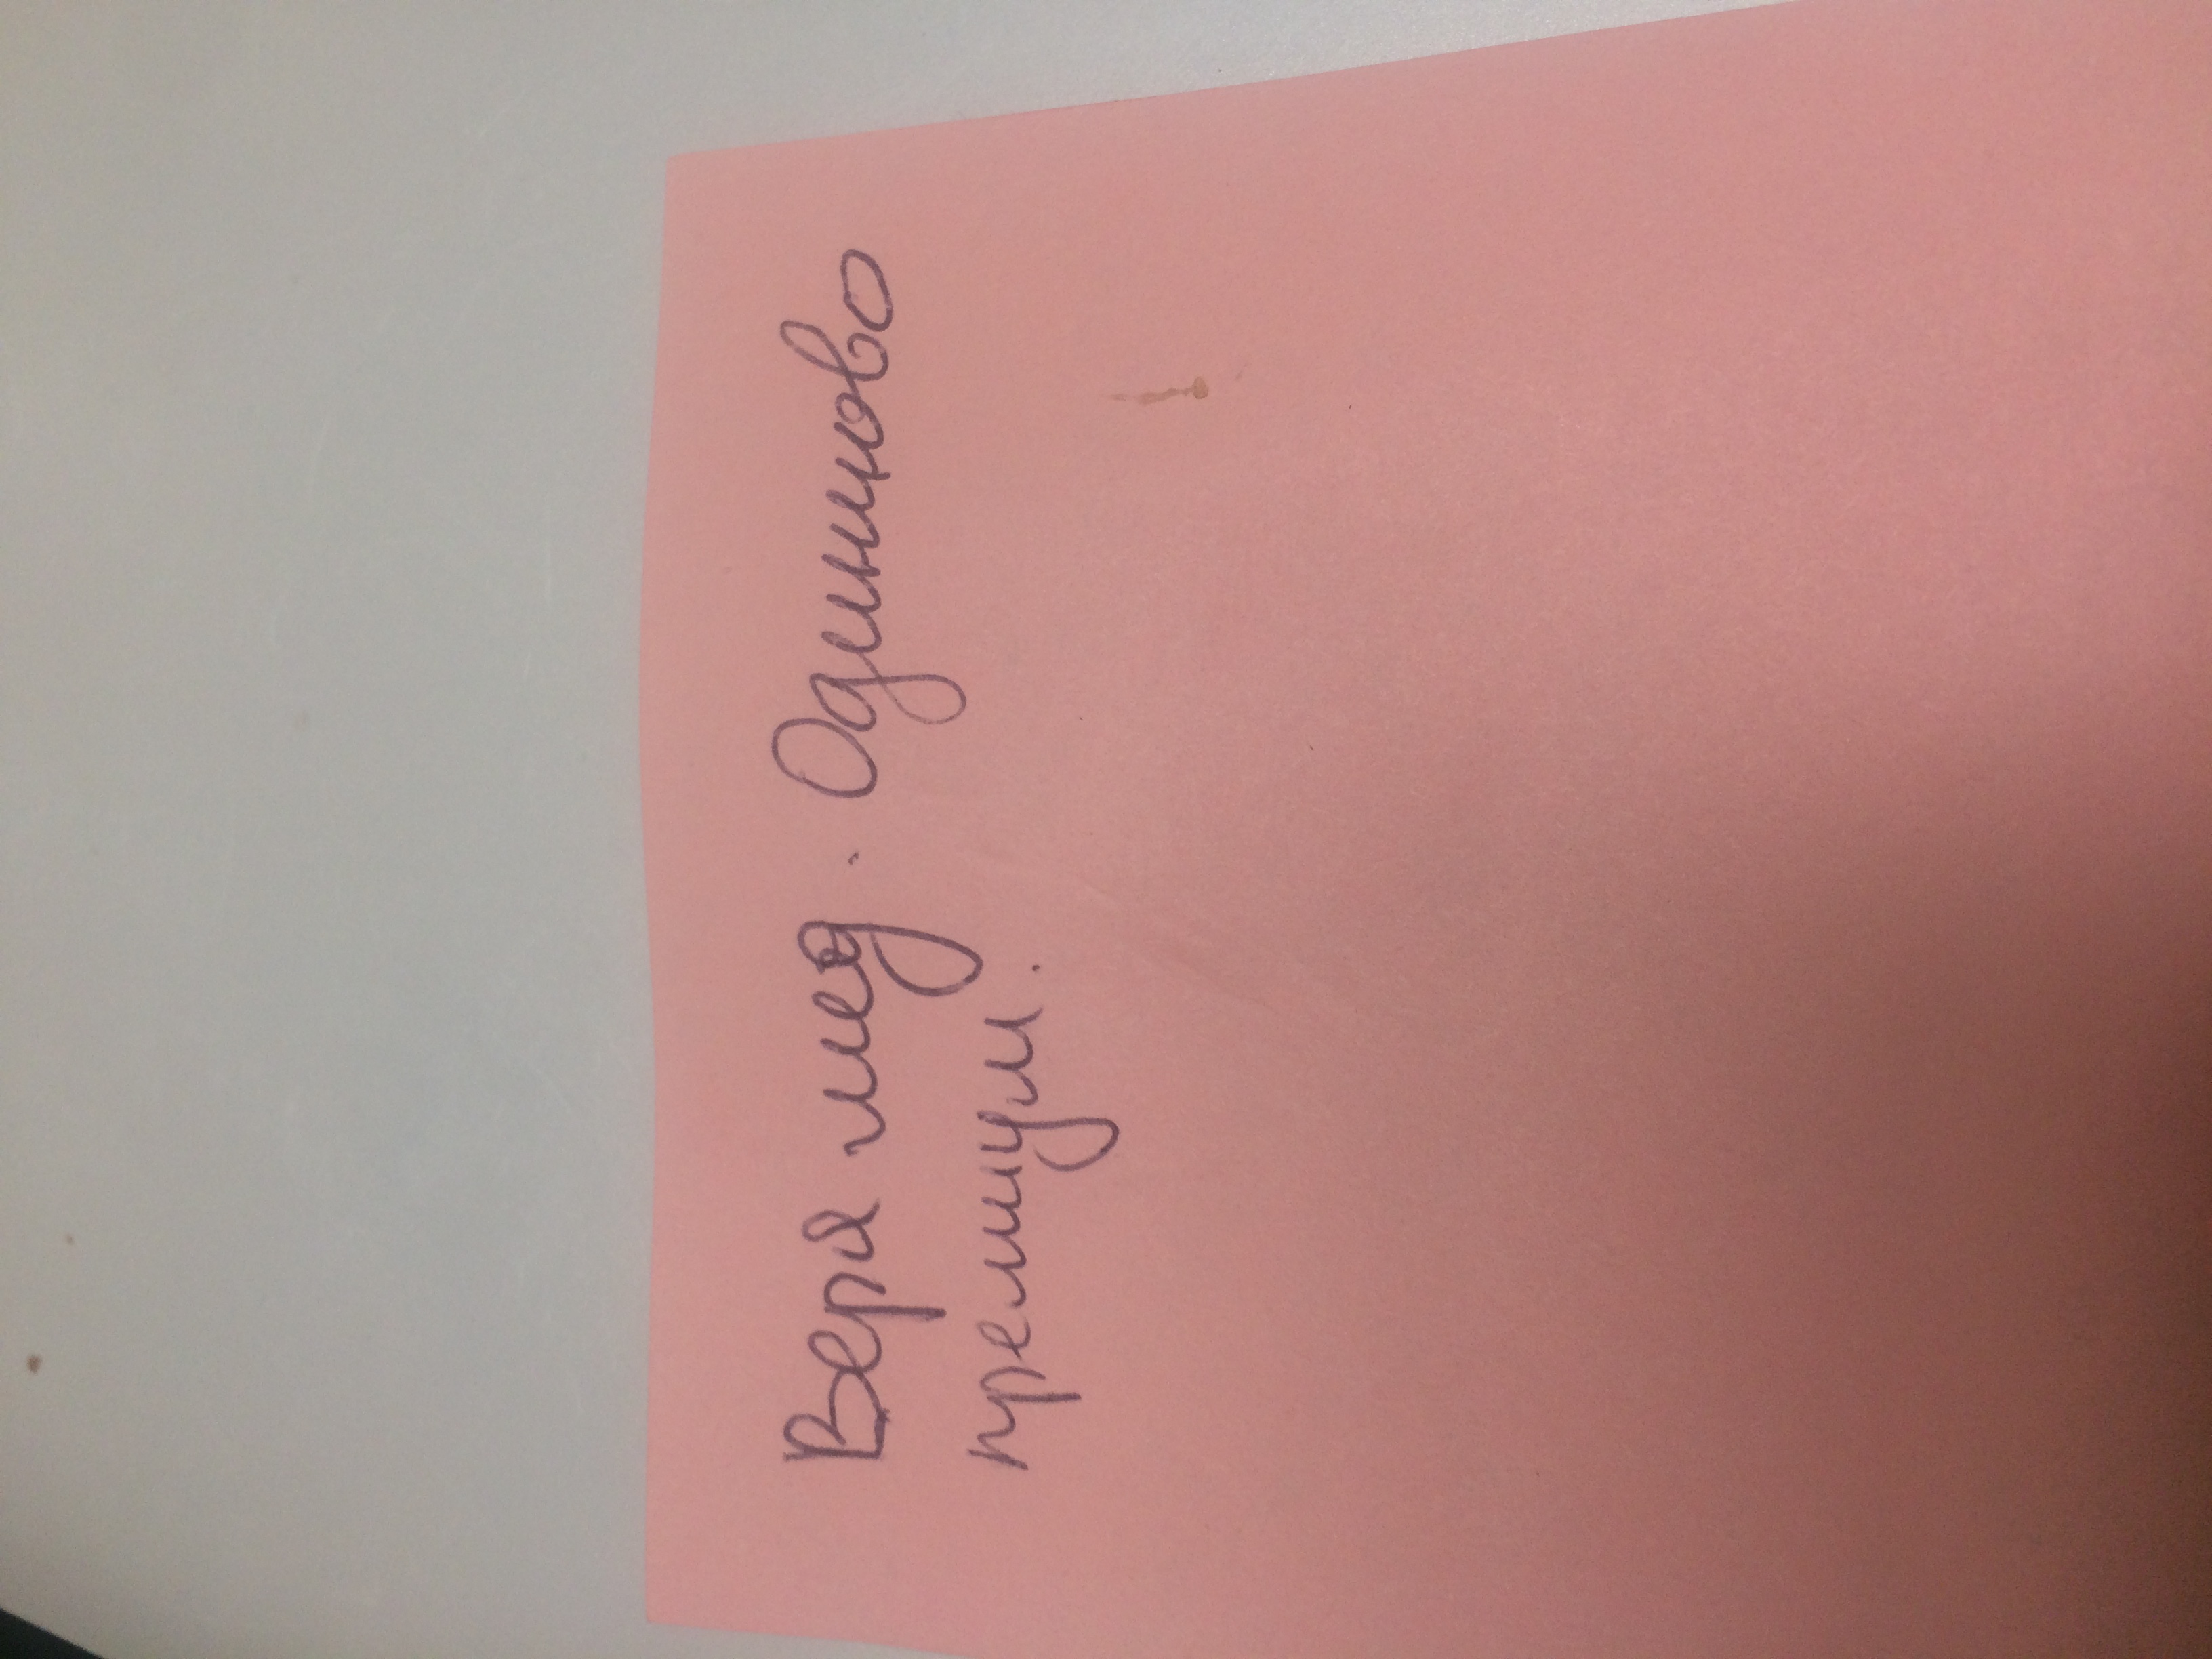 Веря мед. Одинцово
премиум.